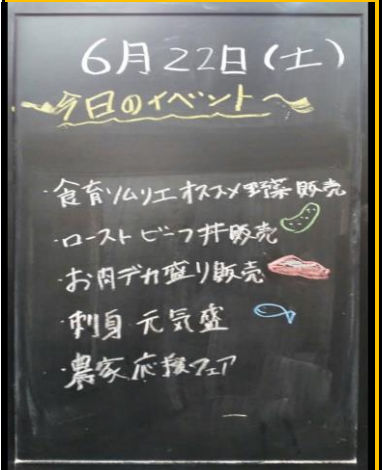 6月22日(土)
～今日のイベント～
・食育ソムリエオススメ野菜販売
・ローストビーフ丼販売
・お肉デカ盛り販売
・刺身 元気盛
・農家応援フェア